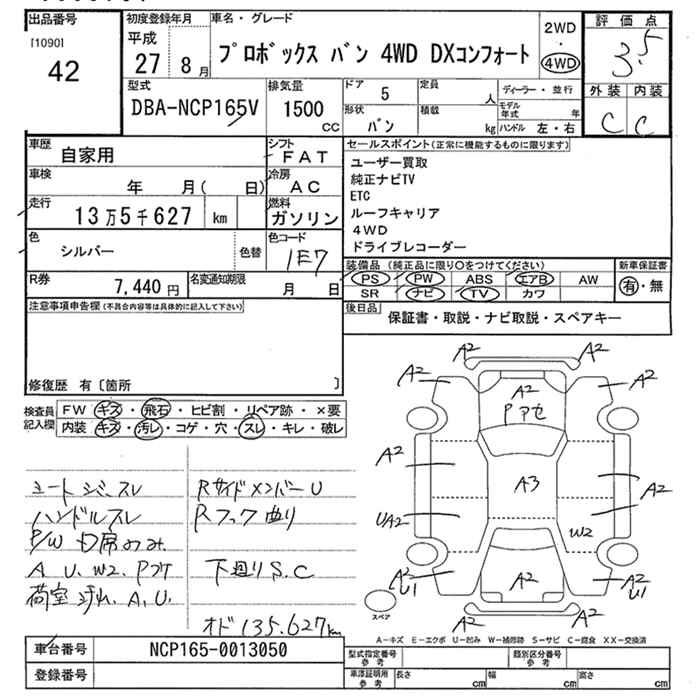 出品番号
[1090]
42
初度登録年月
平成
27 8月
車名・グレード
プロボックス バン 4WD DXコンフォート
2WD
・
4WD
評価点
3.5
外装 内装
C C
型式
DBA-NCP165V
排気量
1500
CC
ドア 5
定員 人
ディーラー・並行
形状 バン
積載 kg
モデル年式 年
ハンドル 左・右
車歴 自家用
シフト FAT
車検 年 月( 日)
冷房 AC
走行 13万5千627 km
燃料 ガソリン
色 シルバー 色替
色コード 1E7
R券 7,440円
名変通知期限 月 日
セールスポイント(正常に機能するものに限ります)
ユーザー買取
純正ナビTV
ETC
ルーフキャリア
4WD
ドライブレコーダー
装備品(純正品に限り○をつけてください)
PS PW ABS エアB AW
SR ナビ TV カワ
新車保証書
有・無
後日品
保証書・取説・ナビ取説・スペアキー
注意事項申告欄(不具合内容等は具体的に記入して下さい)
修復歴 有〔箇所 〕
検査員記入欄
FW キズ・飛石・ヒビ割・リペア跡・×要
内装 キズ・汚レ・コゲ・穴・スレ・キレ・破レ
シートシミ、スレ
ハンドルスレ
P/W
A U. W2. P
荷室 汚れ. A. U.
Rサイドメンバー U
Rフック曲り
下廻り S.C
オド 135.627km
A2 A2
A2 A2 A2
A2 A3 A2
UA2 W2
A2 U1 A2 A2 U1
スペア
A2 A2
A-キズ E-エクボ U-凹み W-補修跡 S-サビ C-腐食 XX-交換済
車台番号 NCP165-0013050
登録番号
型式指定番号 参考
類別区分番号 参考
車澤証明用 参考
長さ cm 幅 cm 高さ cm